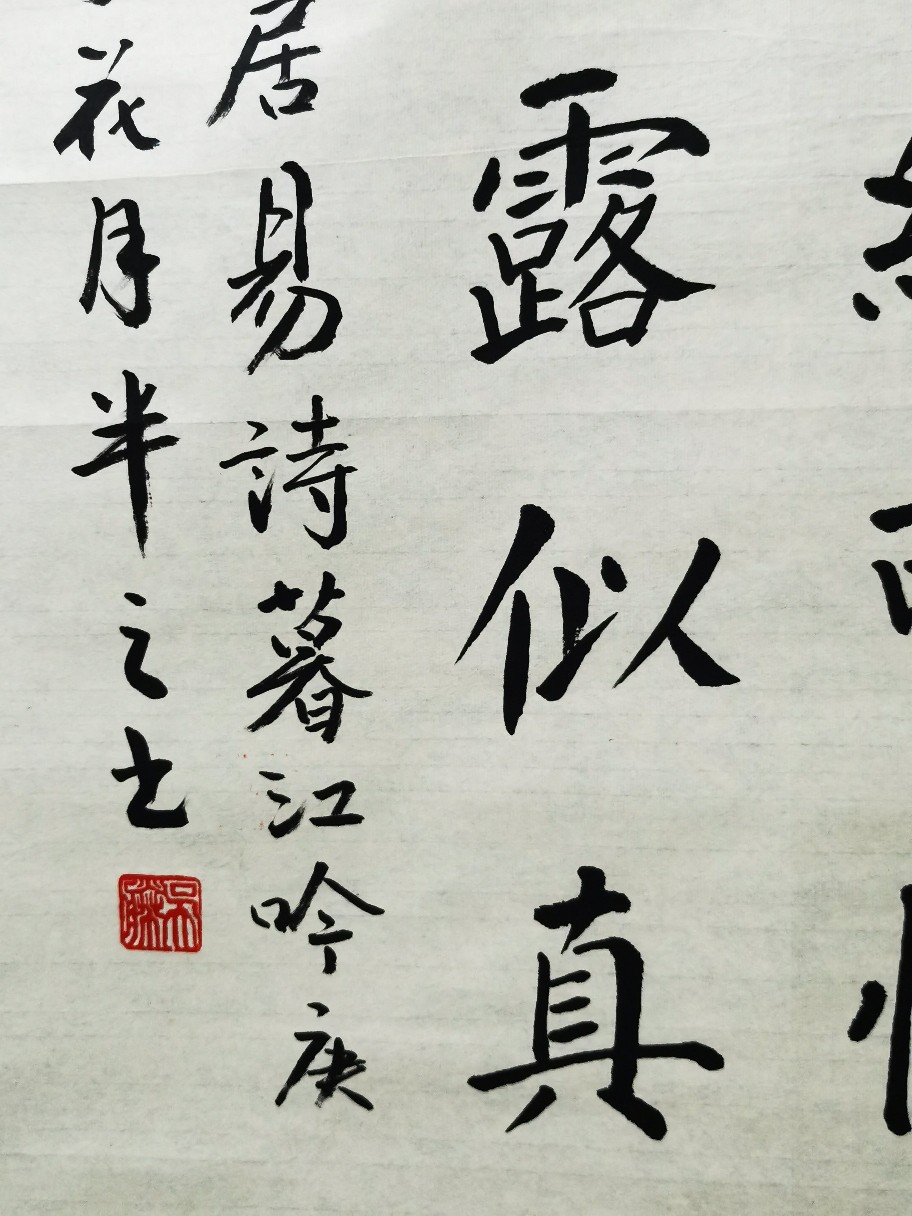 露似真
居易詩暮江吟庚
花月半之士